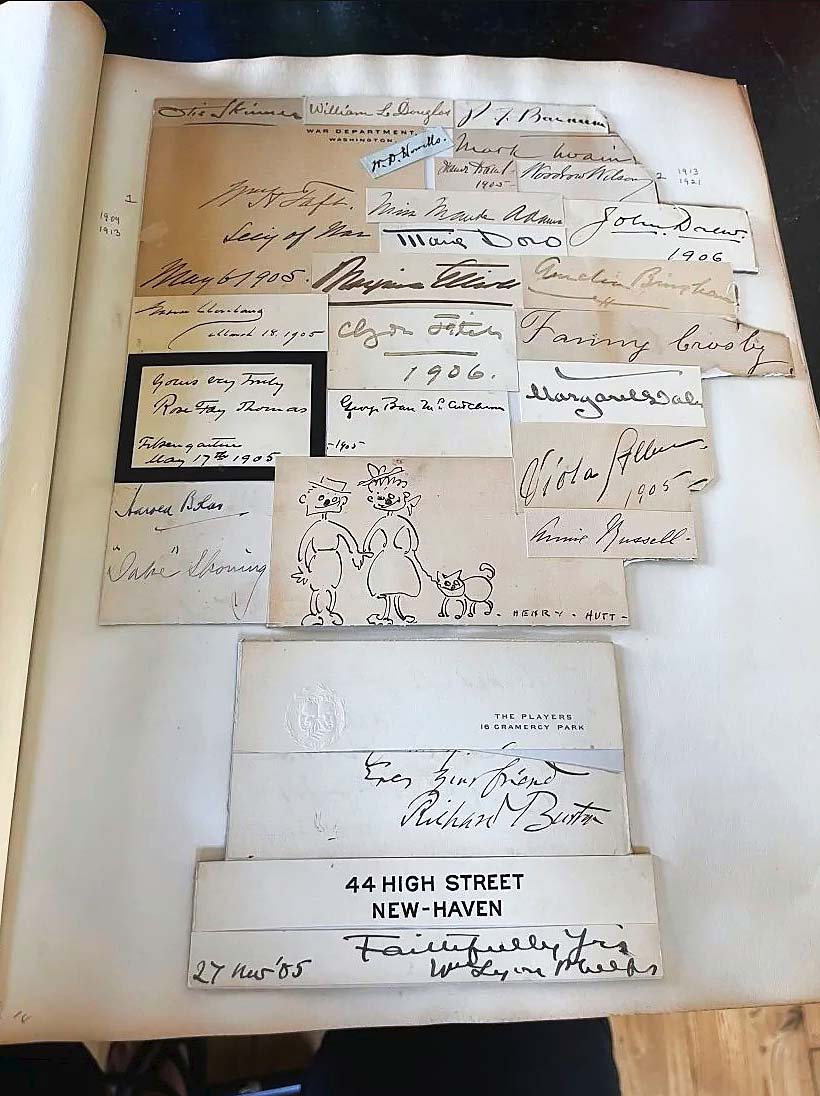 Otis Skinner
William L. Douglas
P. T. Barnum
WAR DEPARTMENT,
WASHINGTON.
W. D. Howells.
Mark Twain
1905
Woodrow Wilson
2
1913
1921
1
1909
1913
Wm H Taft.
Secy of War
May 6 1905.
Miss Maude Adams
Marie Doro
John Drew.
1906
Maxine Elliott
Amelia Bingham
March 18. 1905
Clyde Fitch
1906.
Fanny Crosby
Yours very truly
Rose Fay Thomas
Felsengarten
May 17th 1905
George Barr McCutcheon
-1905
Margaret Dale
Viola Allen
1905
Annie Russell-
Harold
"Jake"
- HENRY - HUTT -
THE PLAYERS
16 GRAMERCY PARK
Ever your friend
Richard Burton
44 HIGH STREET
NEW-HAVEN
Faithfully Yrs
27 Nov '05
Wm Lyon Phelps